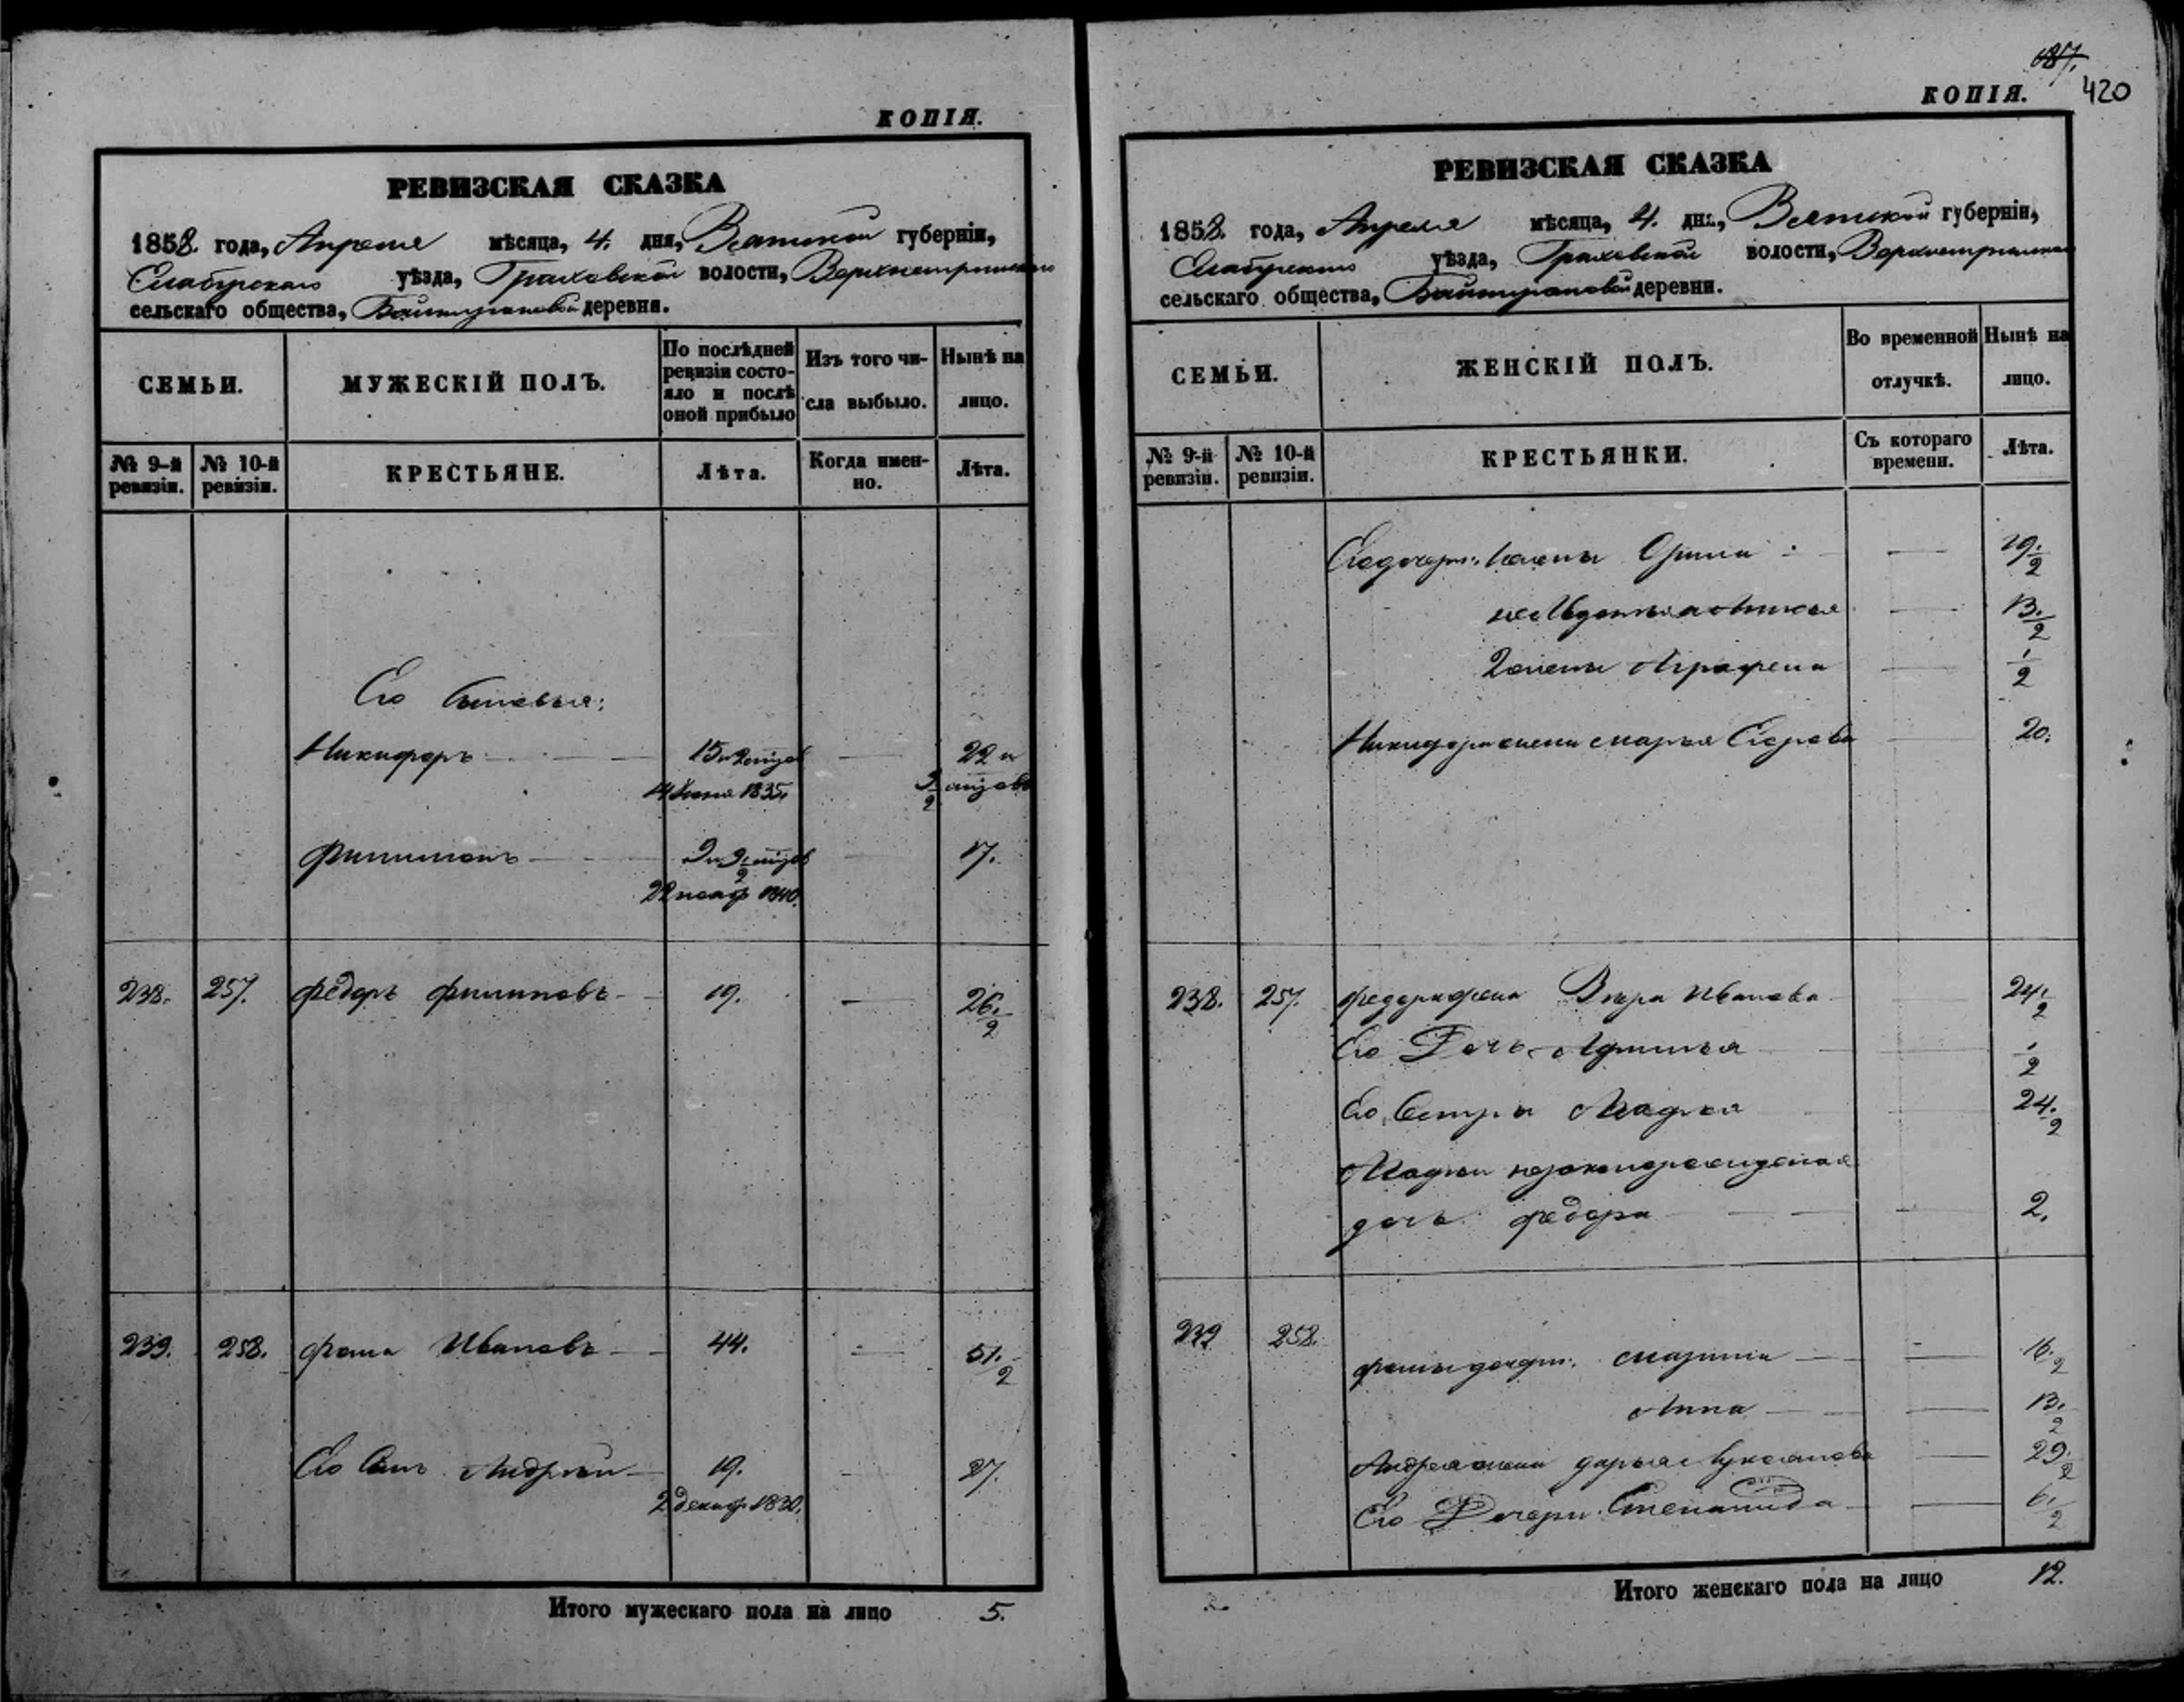 КОПІЯ.
РЕВИЗСКАЯ СКАЗКА
1858. года, Апреля мѣсяца, 4. дня, Вятской губерніи,
Елабугскаго уѣзда, Граховской волости,
сельскаго общества, деревни.
СЕМЬИ.
МУЖЕСКІЙ ПОЛЪ.
По послѣдней ревизіи состо-
яло и послѣ оной прибыло
Изъ того чи-
сла выбыло.
Нынѣ на
лицо.
№ 9-й ревизіи.
№ 10-й ревизіи.
КРЕСТЬЯНЕ.
Лѣта.
Когда имен-
но.
Лѣта.
Его Сыновья:
Никифоръ 15 22 и
1835.
Филимонъ 17.
22 нояб 1840.
238. 257. Федоръ Филиповъ 19. 26. 1/2
239. 258. Фома Ивановъ 44. 51. 1/2
Его Сынъ Андрей 19. 27.
2 декаб 1830.
Итого мужескаго пола на лицо 5.
420
КОПІЯ.
РЕВИЗСКАЯ СКАЗКА
1858. года, Апреля мѣсяца, 4. дня, Вятской губерніи,
Елабугскаго уѣзда, Граховской волости,
сельскаго общества, деревни.
СЕМЬИ.
ЖЕНСКІЙ ПОЛЪ.
Во временной
отлучкѣ.
Нынѣ на
лицо.
№ 9-й ревизіи.
№ 10-й ревизіи.
КРЕСТЬЯНКИ.
Съ котораго
времени.
Лѣта.
Его дочери: 1 жены Орина 19. 1/2
13. 1/2
2 жены Аграфена 1/2
Никифора жена Марья Егорова 20.
238. 257. Федора жена Вера Иванова 24. 1/2
Его Дочь 1/2
Его Сестра Мадья 24. 1/2
Мадьи незаконорожденая
дочь Федора 2.
239 258.
Фомы дочери: 16. 1/2
Анна 13. 1/2
Андрея жена Дарья 29. 1/2
Его Дочери Степанида 6. 1/2
Итого женскаго пола на лицо 12.